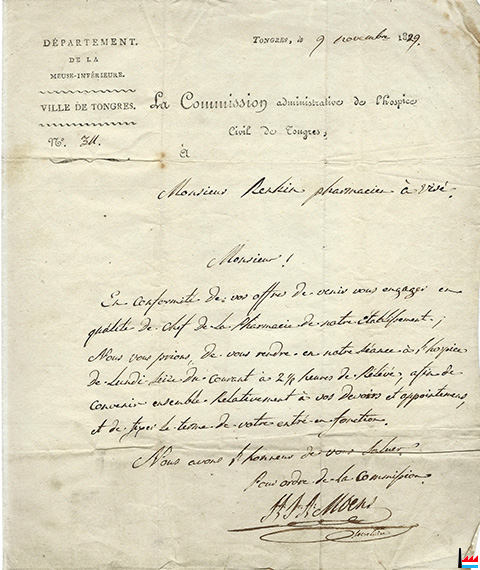 DÉPARTEMENT.
DE LA
MEUSE-INFÉRIEURE.
VILLE DE TONGRES.
N.º 34.
TONGRES, le 9 novembre 1829.
La Commission administrative de l'hospice
Civil de Tongres,
à
Monsieur Renkin pharmacien à visé.
Monsieur!
En Conformité de vos offres de venir vous engager en
qualité de Chef de la Pharmacie de notre établissement;
Nous vous prions, de vous rendre en notre séance à l'hospice
de Lundi seize du Courant à 2½ heures de Rélévé, afin de
Convenir ensemble Relativement à vos devoirs et appointemens,
et de fixer le terme de votre entré en fonction.
Nous avons l'honneur de vous Saluer.
Par ordre de la Commission.
Moens
Secrétaire